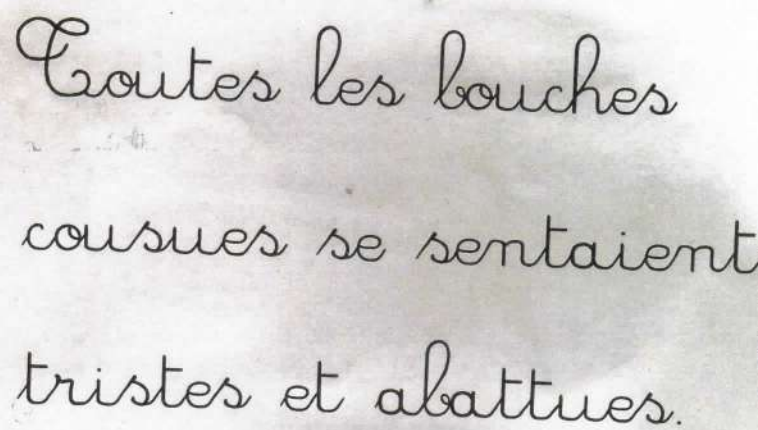 Toutes les bouches
cousues se sentaient
tristes et abattues.